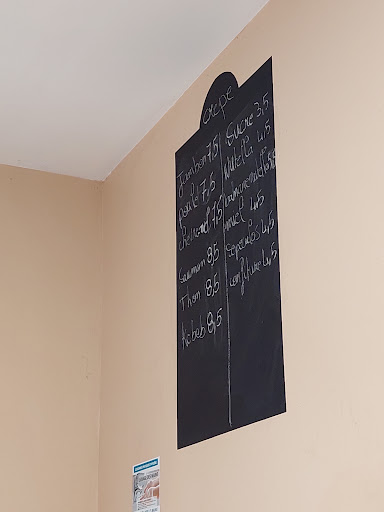 crepe
Jambon 7,5
poulet 7,5
chevre 7,5
Saumon 8,5
Thon 8,5
Kebab 8,5
Sucre 3,5
Nutella 4,5
miel 4,5
speculos 4,5
confiture 4,5